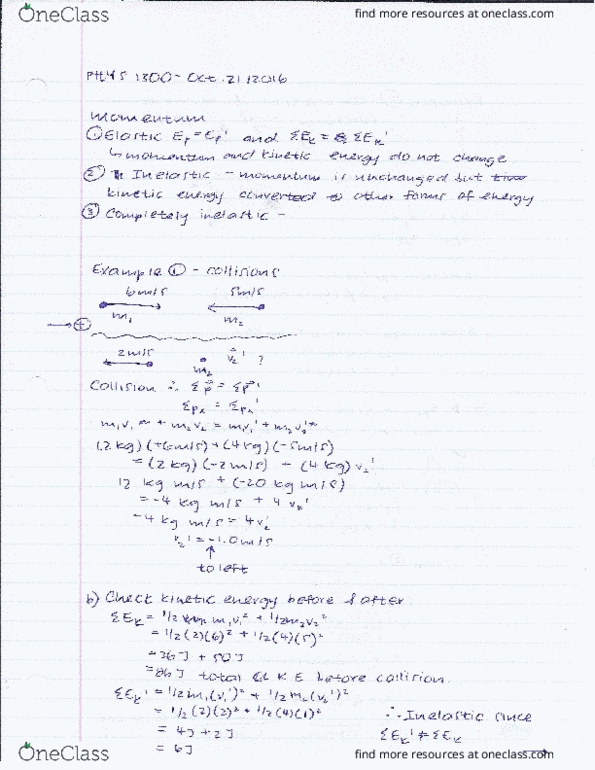 OneClass
find more resources at oneclass.com
PHYS 1300 - Oct. 21 / 2016
Momentum
① Elastic Ep = Ep' and ΣEk = ΣEk'
↳ momentum and kinetic energy do not change
② Inelastic - momentum is unchanged but
kinetic energy converted to other forms of energy
③ Completely inelastic -
Example ① - collisions
6m/s 5m/s
m₁ m₂
→ +
2m/s v₂' ?
m₂
Collision ∴ Σp⃗ = Σp⃗'
Σpx = Σpx'
m₁v₁ + m₂v₂ = m₁v₁' + m₂v₂'
(2 kg)(+6m/s) + (4kg)(-5m/s)
= (2 kg)(-2m/s) + (4kg) v₂'
12 kg m/s + (-20 kg m/s)
= -4 kg m/s + 4 v₂'
-4 kg m/s = 4v₂'
v₂' = -1.0m/s
↑
to left
b) Check kinetic energy before & after
ΣEk = 1/2 m₁v₁² + 1/2m₂v₂²
= 1/2(2)(6)² + 1/2(4)(5)²
= 36J + 50J
= 86J total KE before collision.
ΣEk' = 1/2m₁(v₁')² + 1/2m₂(v₂')²
= 1/2(2)(2)² + 1/2(4)(1)² ∴ Inelastic since
= 4J + 2J ΣEk' ≠ ΣEk
= 6J
OneClass
find more resources at oneclass.com